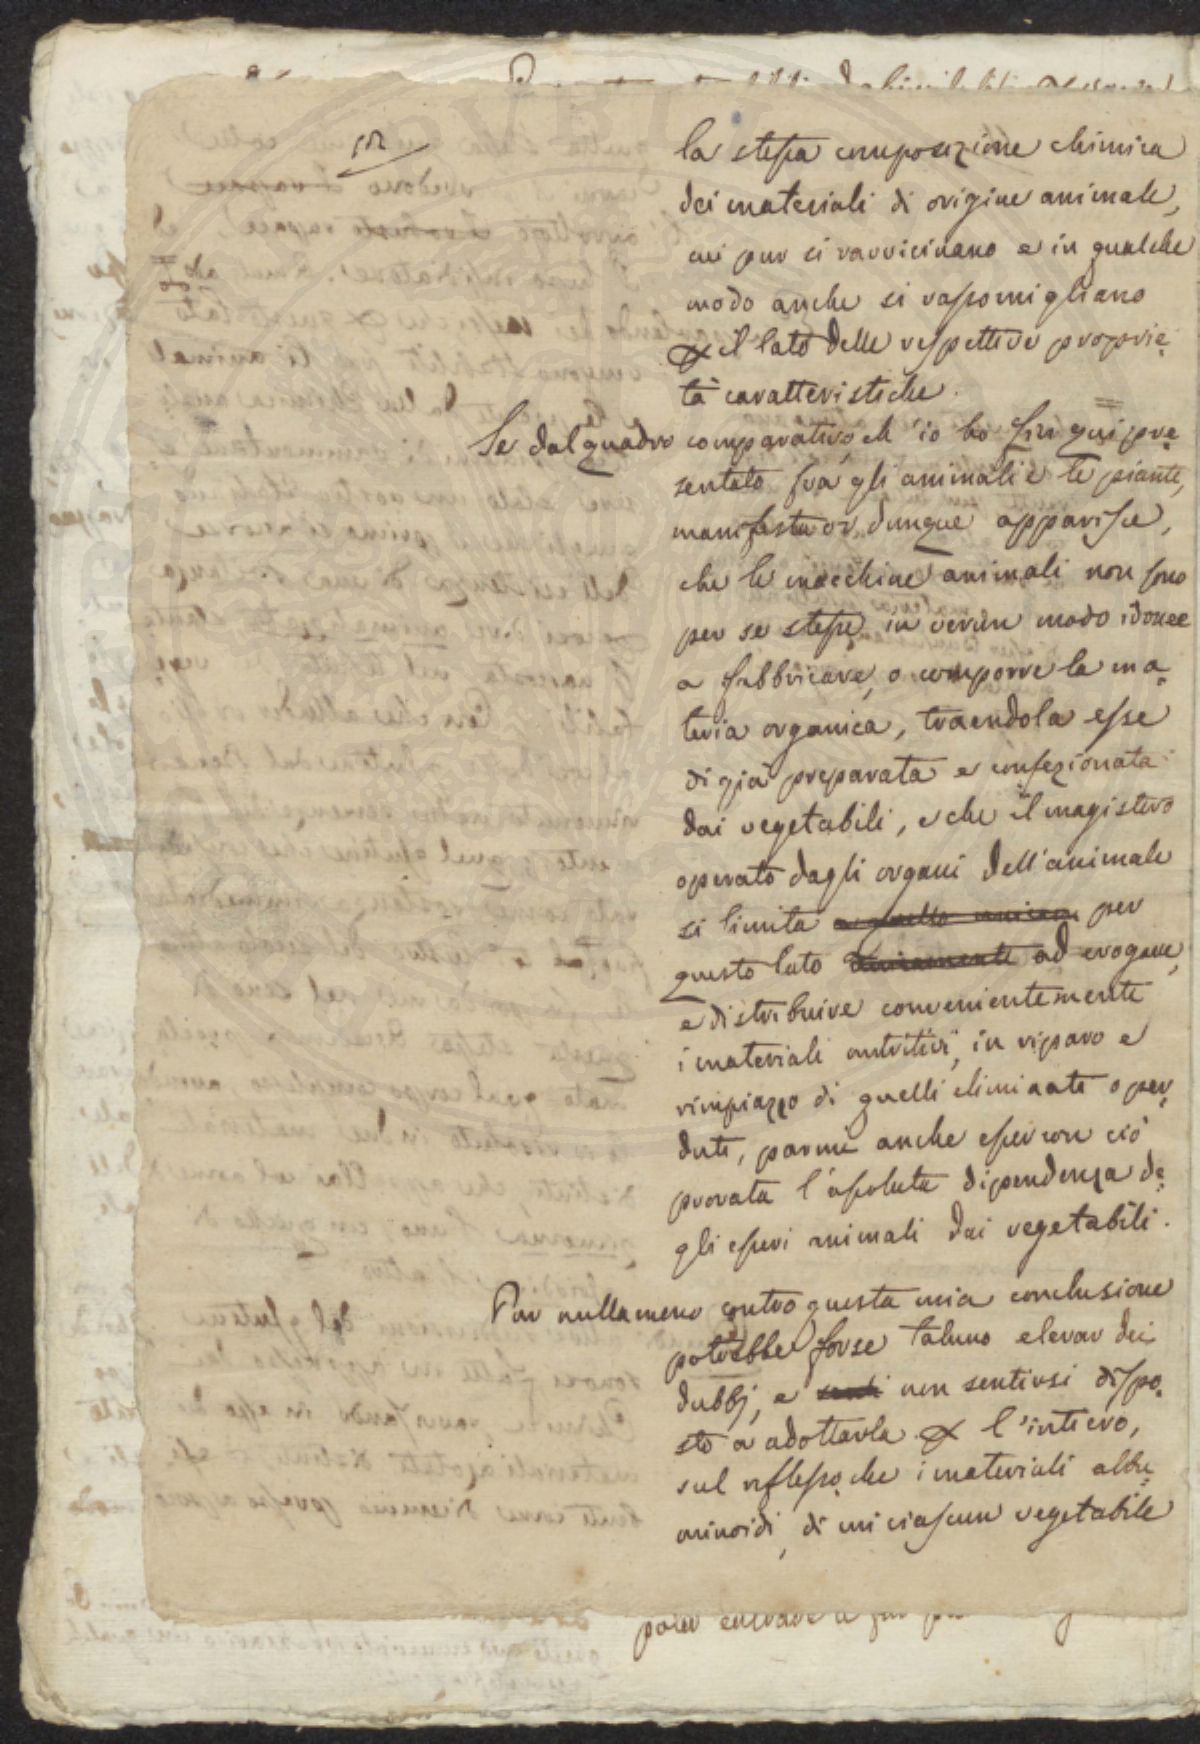 la stessa composizione chimica
dei materiali di origine animale,
cui pur si ravvicinano e in qualche
modo anche si rassomigliano
il lato delle respettive proprie=
tà caratteristiche.
Se dal quadro comparativo, ch'io ho fin qui pre=
sentato fra gli animali e le piante,
manifesto or, dunque apparisce,
che le macchine animali non sono
per se stesse in verun modo idonee
a fabbricare, o comporre la ma=
teria organica, traendola esse
di già preparata e confezionata
dai vegetabili, e che il magistero
operato dagli organi dell'animale
si limita a quello unicam per
questo lato unicamente ad erogare,
e distribuire convenientemente
i materiali nutritivi, in riparo e
rimpiazzo di quelli eliminati o per=
duti, parmi anche esser con ciò
provata l'assoluta dipendenza de=
gli esseri animali dai vegetabili.
Pur nullameno contro questa mia conclusione
potrebbe forse taluno elevar dei
dubbj, e senti non sentirsi dispo=
sto a adottarla l'intiero,
sul riflesso, che i materiali albu=
minoidi, di cui ciascun vegetabile